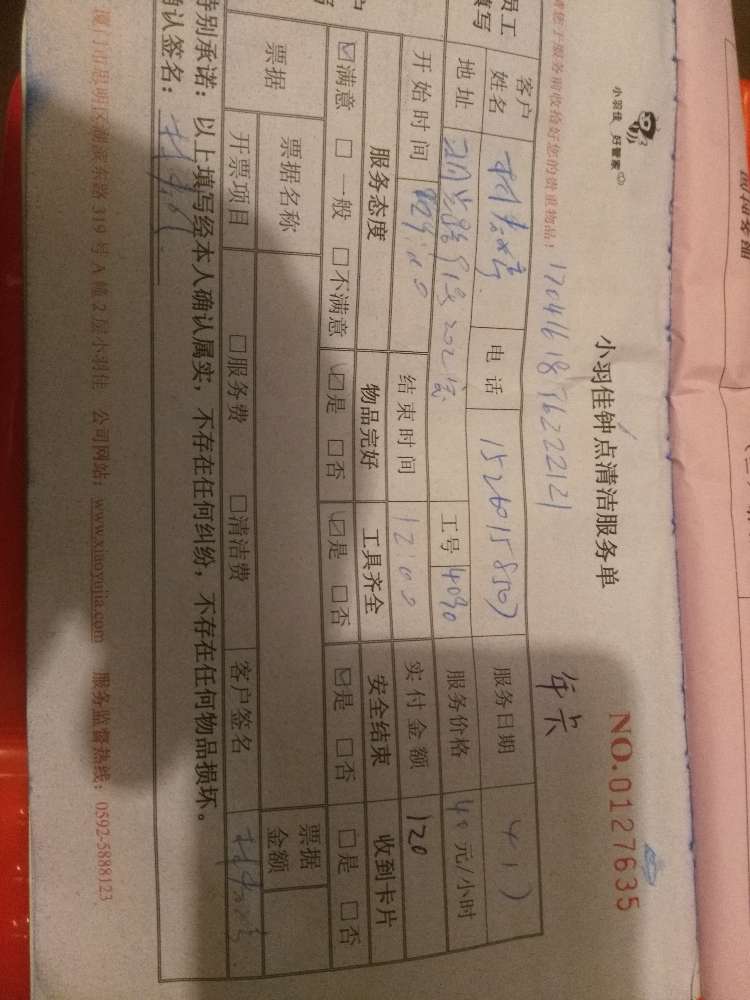 小羽佳 好管家
小羽佳钟点清洁服务单
NO.0127635
请您于服务前收拾好您的贵重物品！
1704161876222121
年卡
员工
填写
客户
姓名
电话
服务日期
地址
202室
工号 4090
服务价格 40 元/小时
开始时间
结束时间 12:00
实付金额 120
服务态度 物品完好 工具齐全 安全结束 收到卡片
☑满意 □一般 □不满意 ☑是 □否 ☑是 □否 ☑是 □否 □是 □否
票据
票据名称
票据
金额
开票项目 □服务费 □清洁费 客户签名
特别承诺：以上填写经本人确认属实，不存在任何纠纷，不存在任何物品损坏。
确认签名：
厦门市思明区湖滨东路319号A幢2层小羽佳 公司网站：www.xiaoyujia.com 服务监督热线：0592-5888123